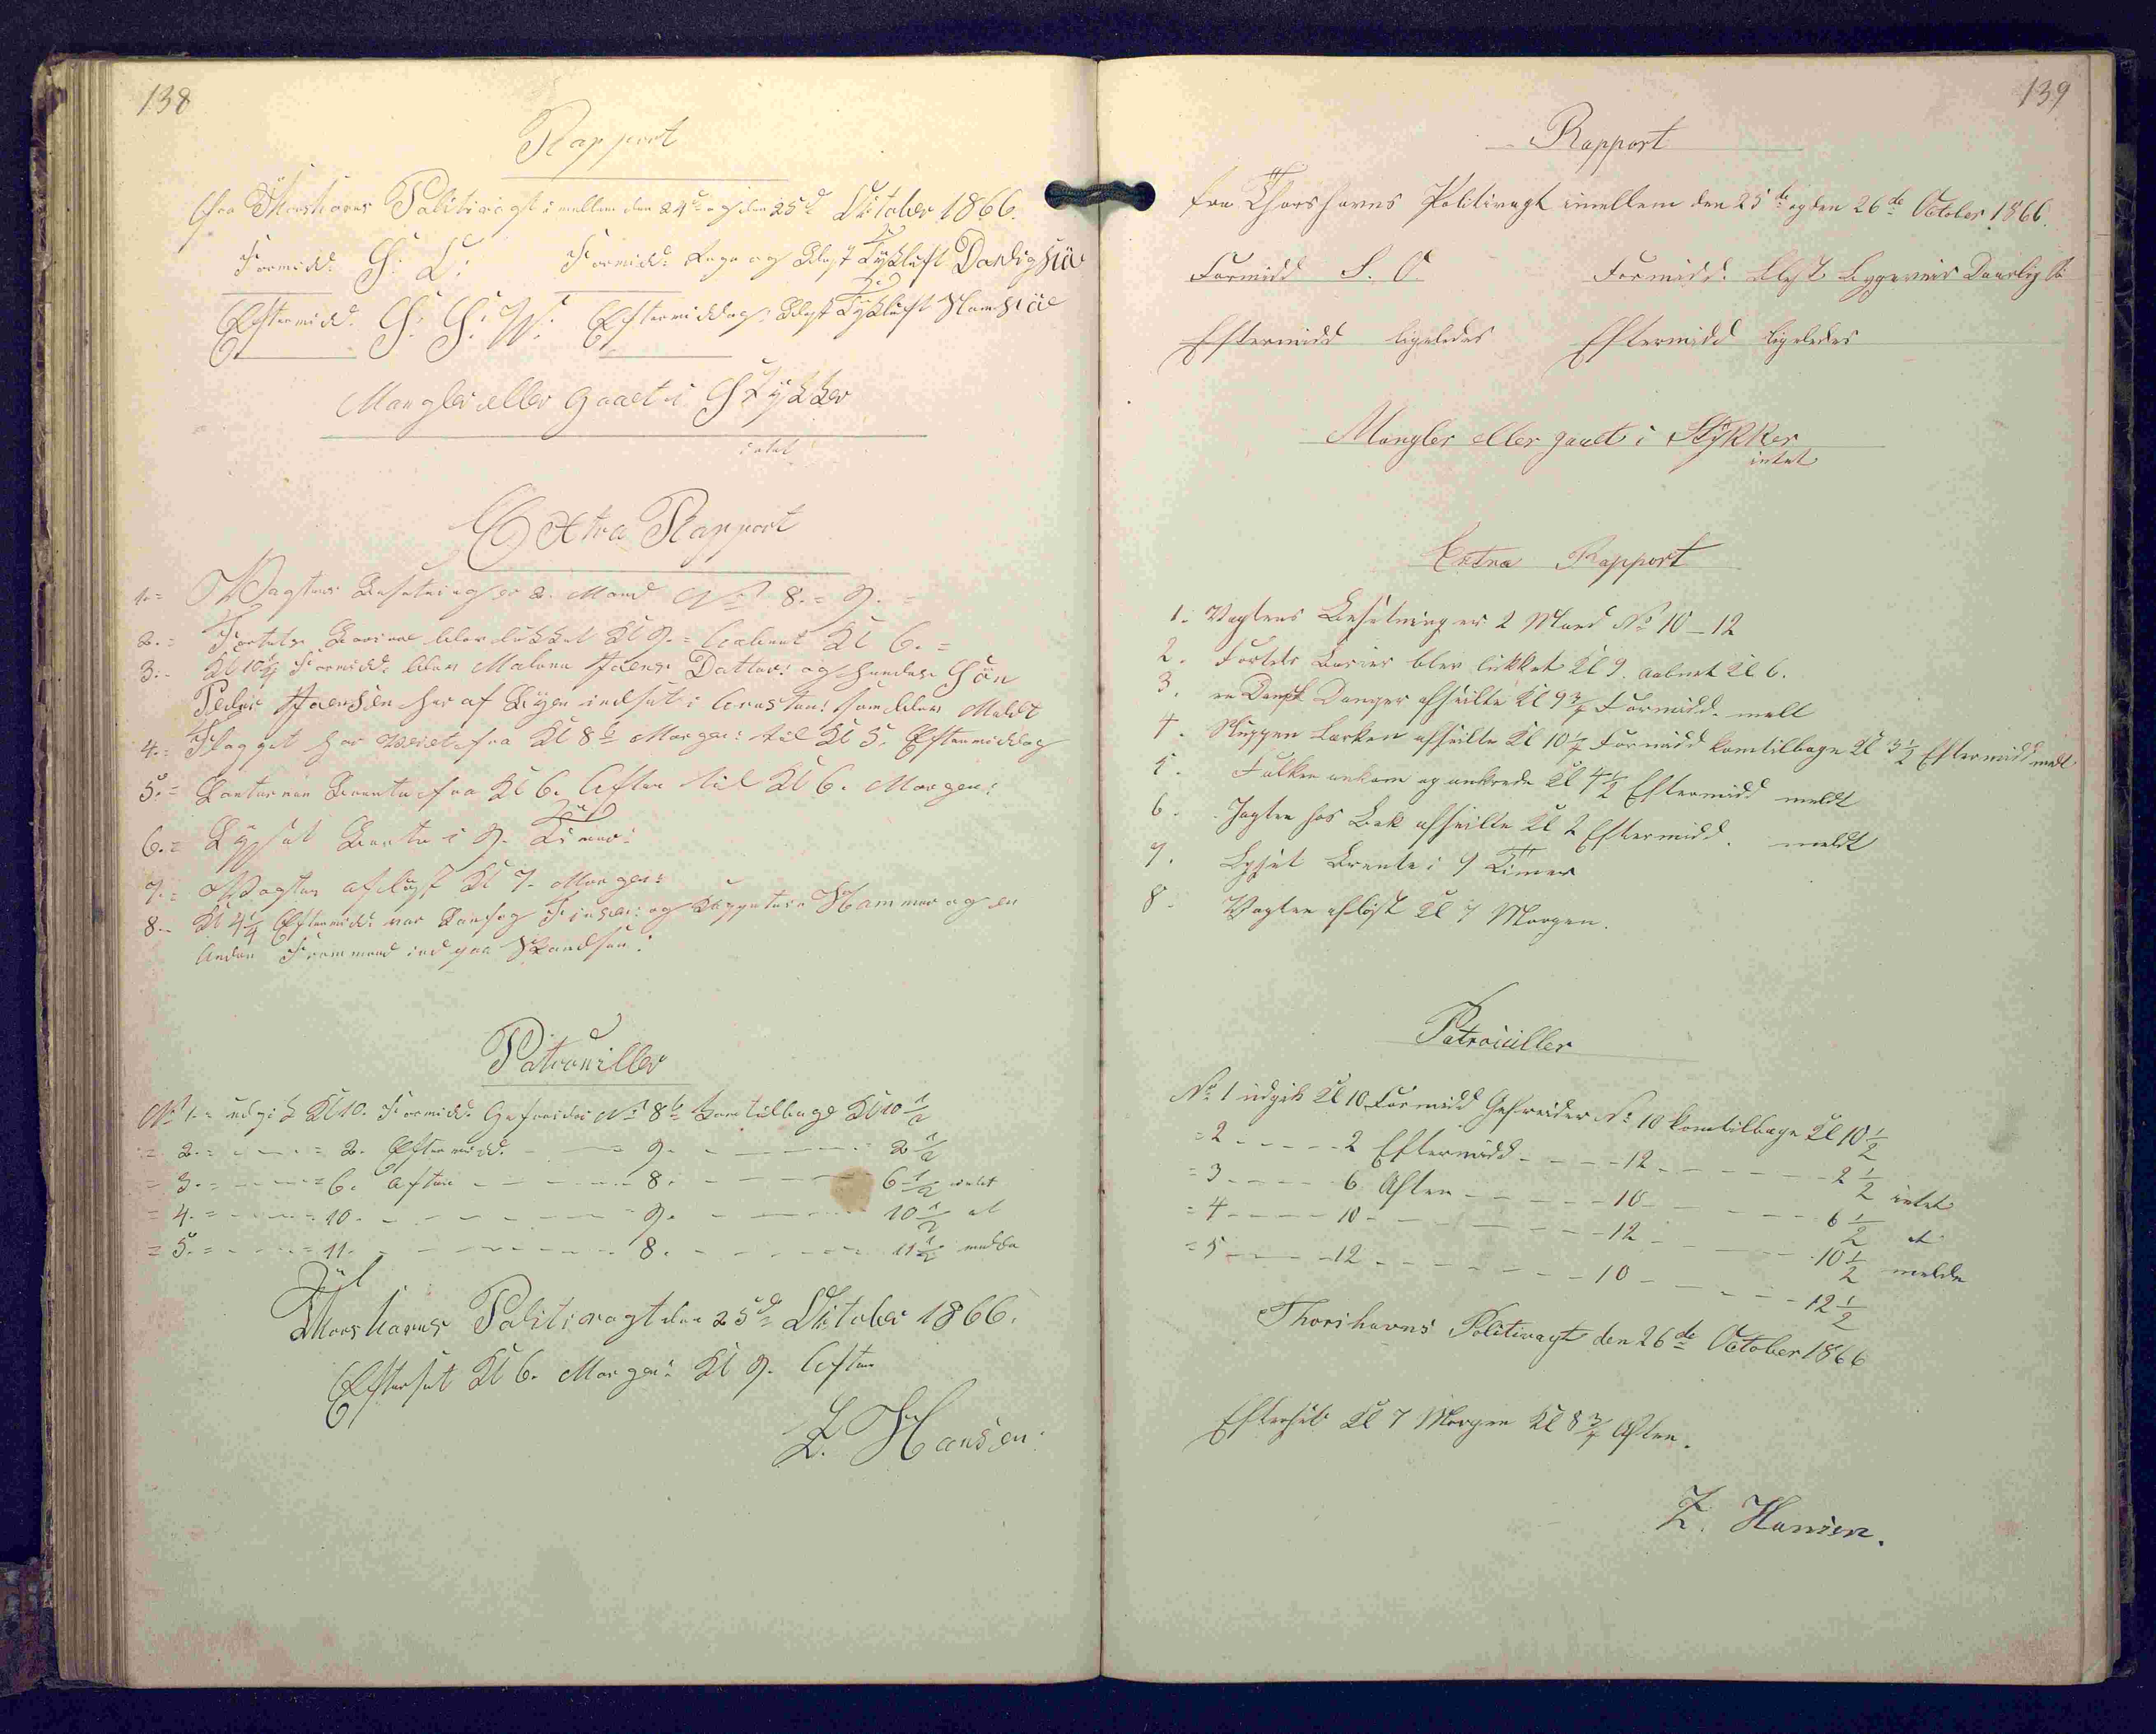 138
Rapport
fra Thorshavns Politivagt imellem den 24de og den 25de October 1866.
Formidd: S. O. Formidd: Rægn og Blæst Tyklüft Daarlig Siœ
Eftermidd: S. S. W. Eftermiddag: Blæst Tyklüft Slem Siœ
Mangler eller Gaaet i Stykker
intet
Extra Rapport
1. = Vagtens Besetning er 2. Mand No 8. = 9. =
2. = Fortets Barierer blev lukket Kl 9. = Aabnet Kl 6. =
3. - Kl 10 Formidd: blev Malene Joens Datter: og hendes Sön
Peder Joensen her af Byen indsat i Aresten: som blev Meldt
4. = Flagget har Veiet fra Kl 8 Morgen: til Kl 5. Eftermiddag
5. = Lanternen Brænte fra Kl 6. Aften til Kl 6. Morgen:
6. = Lyset Brænte i 9. Timer:
7. = Vagten aflöst Kl 7. Morgen:
8. - Kl 4 1/4 Eftermidd: var Landfog og Hammer og en
Anden Fremmed ind paa Skandsen:
Patrouiller
No 1. = udgik Kl 10. Formidd: Gefreider No 8 kom tilbage Kl 10 1/2
= 2. = - - - = 2. Eftermidd: - - = 9. - - - - 2 1/2
= 3. = - - - = 6. Aften - - - - 8. - - - - 6 1/2 intet
= 4. = - - - = 10. - - - - - = 9. - - - - 10 1/2 at
= 5. = - - - = 11. - - - - - - 8. - - - - 11 1/2 melde
Thorshavns Politivagt den 25de October 1866.
Efterset Kl 6. Morgen: Kl 9. Aften
Z. Hansen:
139
Rapport
fra Thorshavns Politivagt imellem den 25de og den 26de October 1866.
Formidd S. O. Formidd: Blæst Bygeveir Daarlig Sö
Eftermidd ligeledes Eftermidd ligeledes
Mangler eller gaaet i Stykker
intet
Extra Rapport
1. Vagtens Besetning er 2 Mand No 10 - 12
2. Fortets Barier blev lukket Kl 9. aabnet Kl 6.
3. en Dansk afseilte Kl 9 3/4 Formidd. melt
4. Sluppen Lærken afseilte Kl 10 1/2 Formidd kom tilbage Kl 3 1/2 Eftermidd melt
5. Falken ankom og ankrede Kl 4 1/2 Eftermidd meldt
6. Jagten hos Bak afseilte Kl 2 Eftermidd. meldt
7. Lyset Brænte i 9 Timer
8. Vagten aflöst Kl 7 Morgen.
Patrouiller
No 1 udgik Kl 10 Formidd Gefreider No 10 kom tilbage Kl 10 1/2
= 2 - - - - 2 Eftermidd - - - - 12 - - - - - 2 1/2 intet
= 3 - - - - 6 Aften - - - - - 10 - - - - - 6 1/2 at
= 4 - - - - 10 - - - - - - - 12 - - - - - 10 1/2 melde
= 5 - - - - 12 - - - - - - - 10 - - - - - 12 1/2
Thorshavns Politivagt den 26de October 1866
Efterset Kl 7 Morgen Kl 8 3/4 Aften.
Z. Hansen.